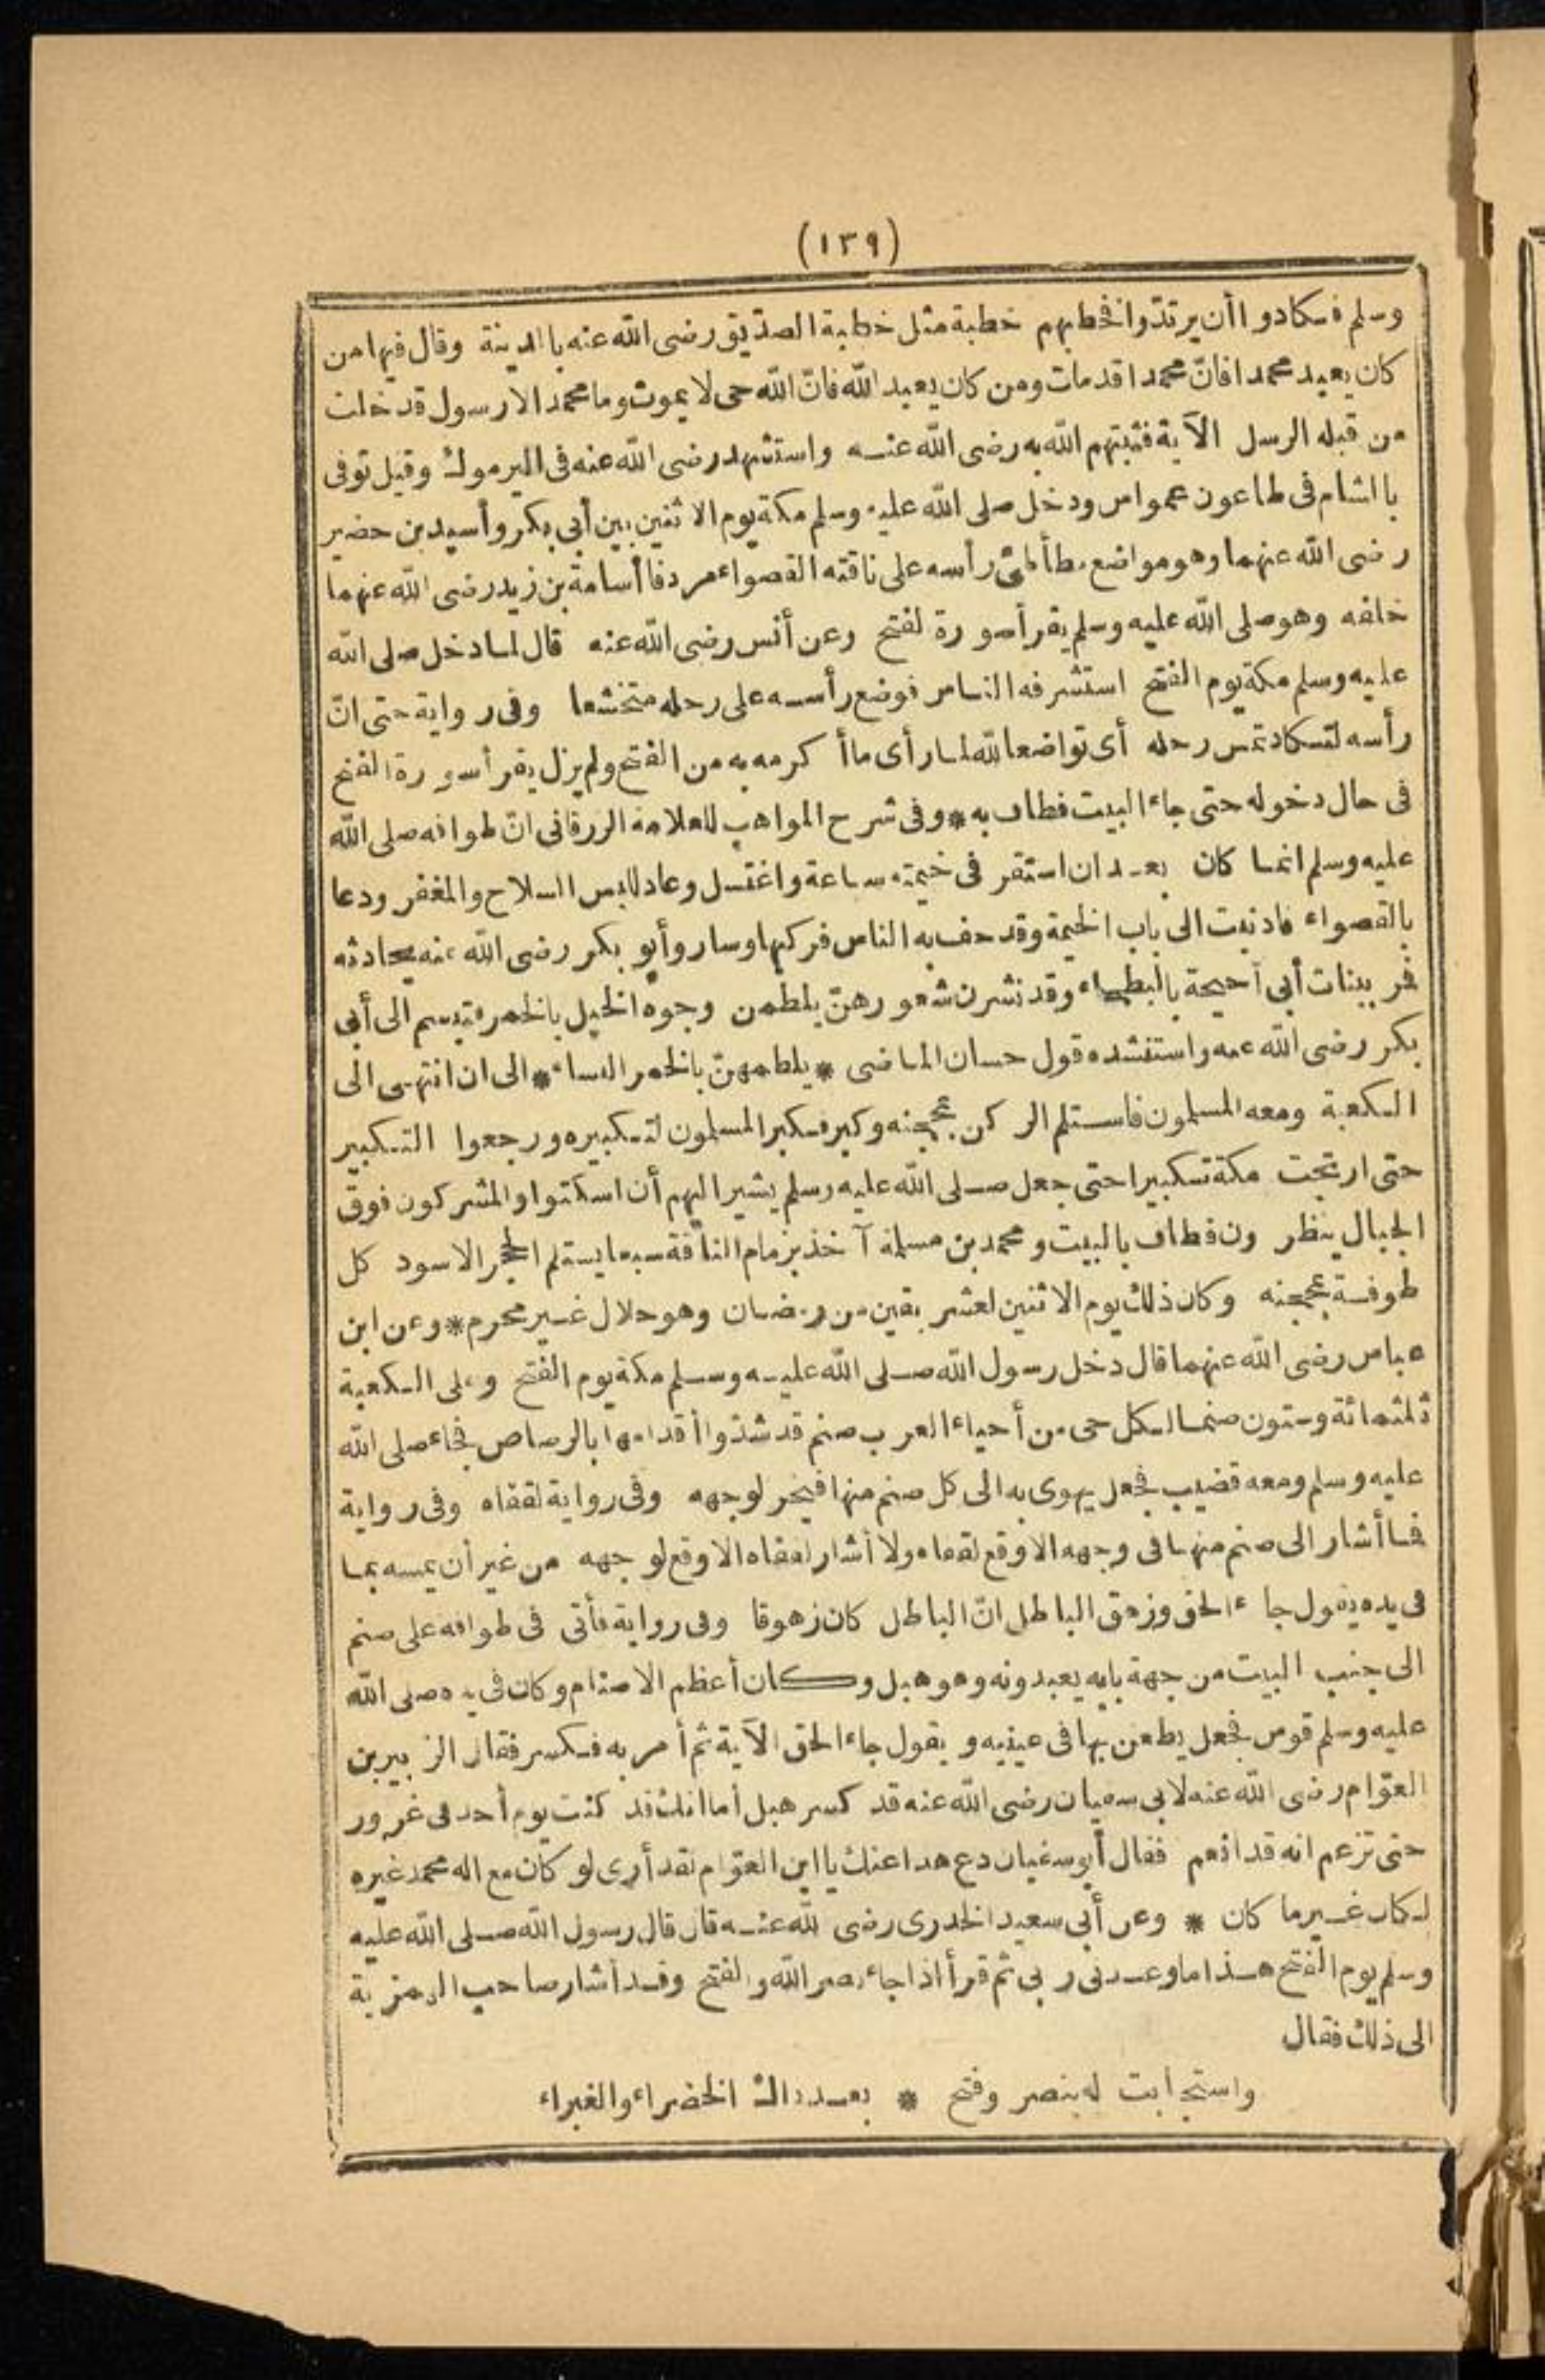 (١٣٩)
وسلم فكادوا أن يرتدّوا فخطبهم خطبة مثل خطبة الصدّيق رضى الله عنه بالمدينة وقال فيها من
كان يعبد محمدا فانّ محمدا قد مات ومن كان يعبد الله فانّ الله حى لا يموت وما محمد الا رسول قد خلت
من قبله الرسل الآية فثبتهم الله به رضى الله عنه واستشهد رضى الله عنه فى اليرموك وقيل توفى
بالشام فى طاعون عمواس ودخل صلى الله عليه وسلم مكة يوم الاثنين بين أبي بكر وأسيد بن حضير
رضى الله عنهما وهو مواضع مطأطئ رأسه على ناقته القصواء مردفا أسامة بن زيد رضى الله عنهما
خلفه وهو صلى الله عليه وسلم يقرأ سورة الفتح وعن أنس رضى الله عنه قال لما دخل صلى الله
عليه وسلم مكة يوم الفتح استشرفه الناس فوضع رأسه على رحله متخشعا وفى رواية حتى انّ
رأسه لتكاد تمس رحله أى تواضعا لله لما رأى ما أكرمه به من الفتح ولم يزل يقرأ سورة الفتح
فى حال دخوله حتى جاء البيت فطاف به * وفى شرح المواهب للعلامة الزرقانى انّ طوافه صلى الله
عليه وسلم انما كان بعد ان استقر فى خيمته ساعة واغتسل وعاد للبس السلاح والمغفر ودعا
بالقصواء فادنيت الى باب الخيمة وقد حف به الناس فركبها وسار وأبو بكر رضى الله عنه يحادثه
فمر ببنات أبي أحيحة بالبطحاء وقد نشرن شعورهنّ يلطمن وجوه الخيل بالخمر فتبسم الى أبي
بكر رضى الله عنه واستنشده قول حسان الماضى * يلطمهنّ بالخمر النساء * الى ان انتهى الى
الكعبة ومعه المسلمون فاستلم الركن بمحجنه وكبر فكبر المسلمون لتكبيره ورجعوا التكبير
حتى ارتجت مكة تكبيرا حتى جعل صلى الله عليه وسلم يشير اليهم أن اسكتوا والمشركون فوق
الجبال ينظرون فطاف بالبيت ومحمد بن مسلمة آخذ بزمام الناقة سبعا يستلم الحجر الاسود كل
طوفة بمحجنه وكان ذلك يوم الاثنين لعشر بقين من رمضان وهو حلال غير محرم * وعن ابن
عباس رضى الله عنهما قال دخل رسول الله صلى الله عليه وسلم مكة يوم الفتح وعلى الكعبة
ثلثمائة وستون صنما لكل حى من أحياء العرب صنم قد شدّوا أقدامها بالرصاص فجاء صلى الله
عليه وسلم ومعه قضيب فجعل يهوى به الى كل صنم منها فيخر لوجهه وفى رواية لقفاه وفى رواية
فما أشار الى صنم منها فى وجهه الا وقع لقفاه ولا أشار لقفاه الا وقع لوجهه من غير أن يمسه بما
فى يده يقول جاء الحق وزهق الباطل انّ الباطل كان زهوقا وفى رواية فأتى فى طوافه على صنم
الى جنب البيت من جهة بابه يعبدونه وهو هبل وكان أعظم الاصنام وكان فى يده صلى الله
عليه وسلم قوس فجعل يطعن بها فى عينيه ويقول جاء الحق الآية ثم أمر به فكسر فقال الزبير بن
العوّام رضى الله عنه لابي سفيان رضى الله عنه قد كسر هبل أما انك قد كنت يوم أحد فى غرور
حتى تزعم انه قد انعم فقال أبو سفيان دع هذا عنك يا ابن العوّام لقد أرى لو كان مع اله محمد غيره
لكان غير ما كان * وعن أبي سعيد الخدرى رضى الله عنه قال قال رسول الله صلى الله عليه
وسلم يوم الفتح هذا ما وعدنى ربى ثم قرأ اذا جاء نصر الله والفتح وقد أشار صاحب الهمزية
الى ذلك فقال
واستجابت له بنصر وفتح * بعد ذاك الخضراء والغبراء